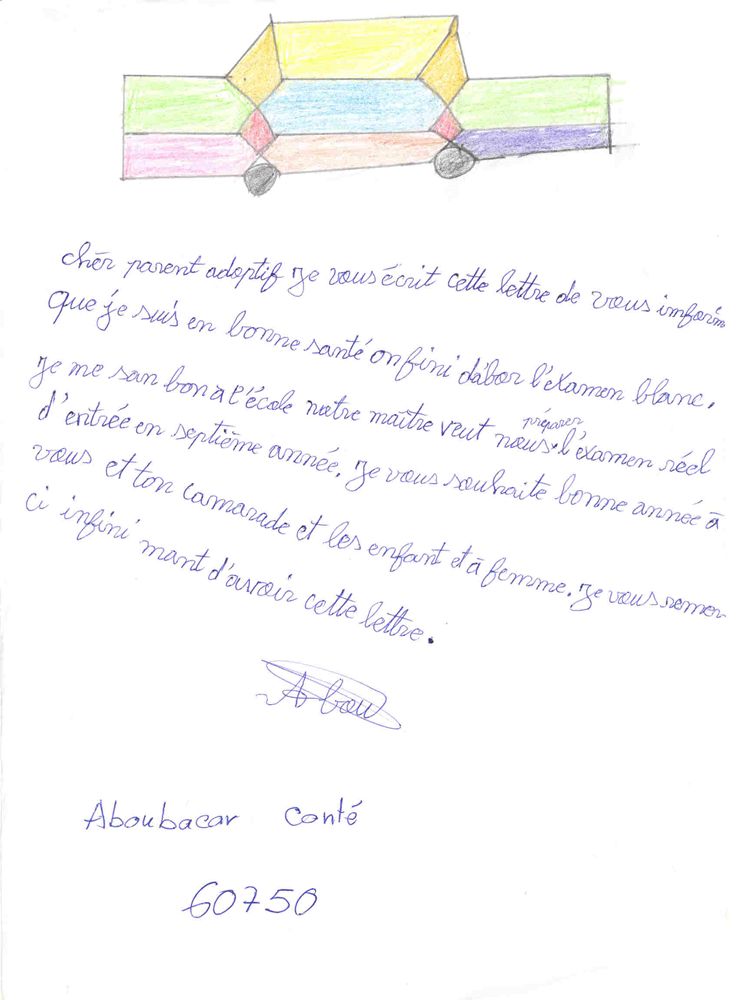 chér parent adoptif Je vous écrit cette lettre de vous imform
que je suis en bonne santé on fini d'âbor l'éxamen blanc.
Je me san bon à l'école notre maître veut nous préparer l'éxamen réel
d'entrée en septième année. Je vous souhaite bonne année à
vous et ton camarade et les enfant et à femme. Je vous remer-
ci infini mant d'avoir cette lettre.
Abou
Aboubacar Conté
60750